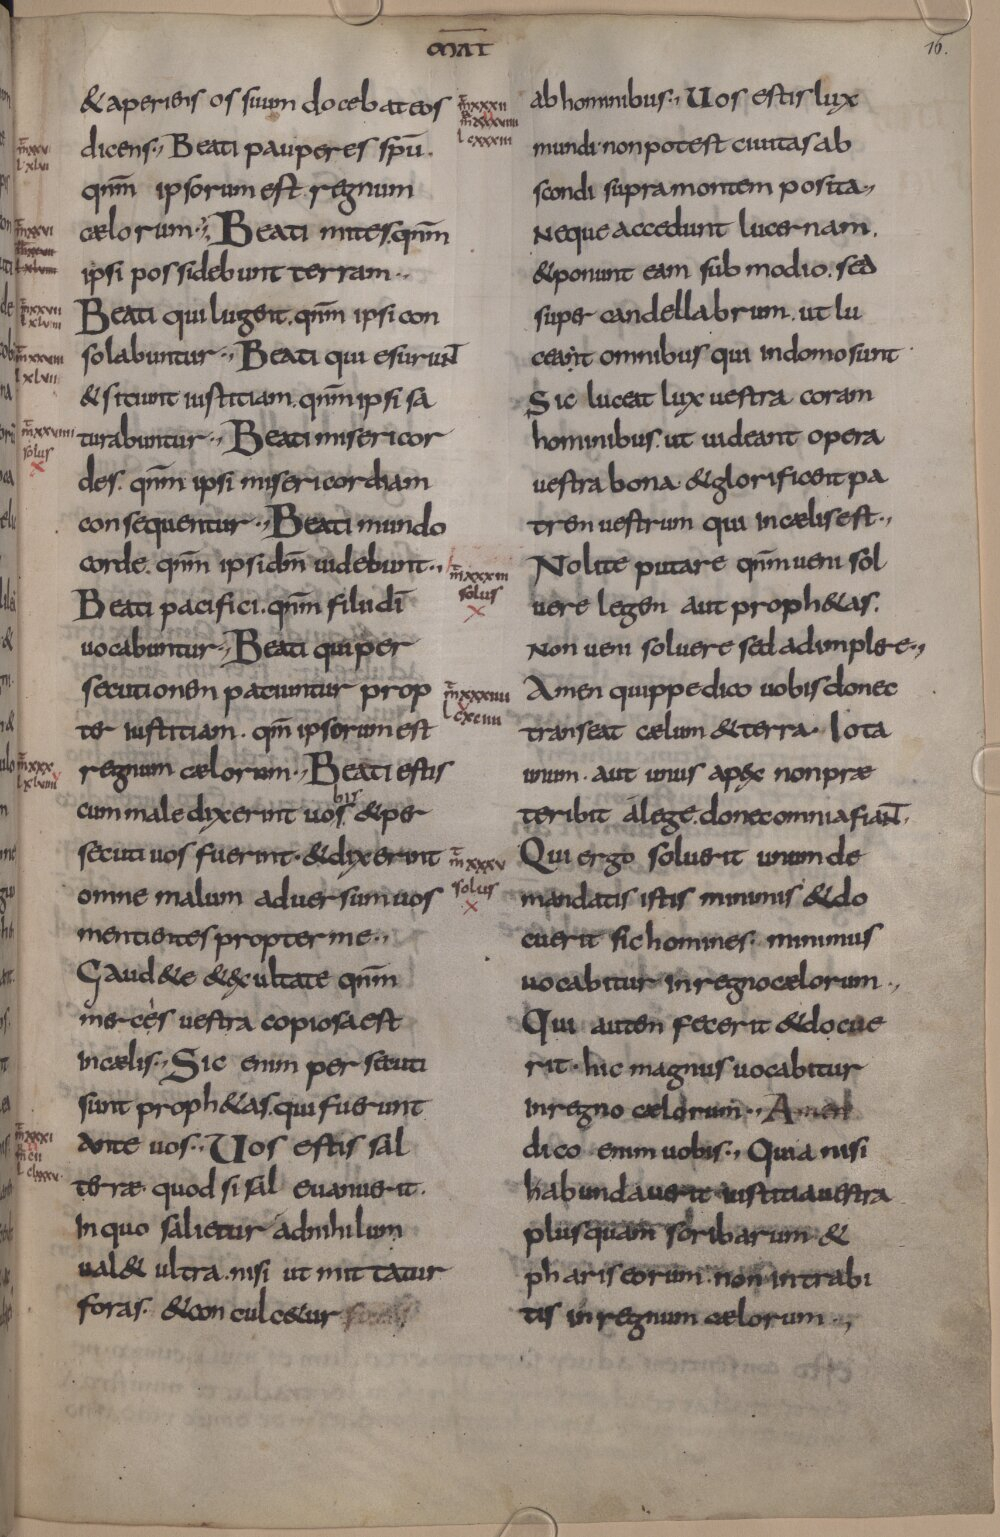 MAT
16.
& aperiens os suum docebat eos
dicens·, Beati pauperes sp̄u.
qnm̄ ipsorum est regnum
cælorum·, Beati mites. qnm̄
ipsi possidebunt terram··
Beati qui lugent. qnm̄ ipsi con
solabuntur·, Beati qui esuriunt
& sitiunt iustitiam. qnm̄ ipsi sa
turabuntur·, Beati misericor
des. qnm̄ ipsi misericordiam
consequentur·, Beati mundo
corde. qnm̄ ipsi dm̄ videbunt·,
Beati pacifici. qnm̄ filii dī
vocabuntur·, Beati qui per
secutionem patiuntur prop
ter iustitiam. qnm̄ ipsorum est
regnum cælorum·, Beati estis
bis
cum male dixerint vos. & per
secuti vos fuerint. & dixerint
omne malum adversum vos
mentientes propter me·,
Gaud&e & exultate qnm̄
merces vestra copiosa est
in cælis·, Sic enim persecuti
sunt proph&as. qui fuerunt
ante vos·, Vos estis sal
terræ. quod si sal evanuerit.
In quo salietur ad nihilum
val& ultra. nisi ut mittatur
foras. & conculc&ur
ab hominibus·, Vos estis lux
mundi. non potest civitas ab
scondi supra montem posita·,
Neque accedunt lucernam.
& ponunt eam sub modio. sed
super candellabrum. ut lu
ceant omnibus qui in domo sunt
Sic luceat lux vestra coram
hominibus. ut videant opera
vestra bona. & glorificent pa
trem vestrum qui in cælis est·,
Nolite putare qnm̄ veni sol
vere legem aut proph&as.
Non veni solvere sed adimplere·,
Amen quippe dico vobis donec
transeat cælum & terra. Iota
unum. aut unus apex non præ
teribit a lege. donec omnia fiant.
Qui ergo solverit unum de
mandatis istis minimis & do
cuerit sic homines. minimus
vocabitur in regno cælorum·,
Qui autem fecerit & docue
rit. hic magnus vocabitur
in regno cælorum·, Amen
dico enim vobis·, Quia nisi
habundaverit iustitia vestra
plus quam scribarum &
phariseorum. non intrabi
tis in regnum cælorum·,
m̄ xxxii
m̄ xxxviiii
l cxxxiii
m̄ xxxiii
solus
m̄ xxxiiii
l cxciiii
m̄ xxxv
solus
m̄ xxvi
m̄ xxvii
l xlviii
m̄ xxviii
l xlvii
m̄ xxviiii
solus
m̄ xxx
l xlviiii
m̄ xxxi